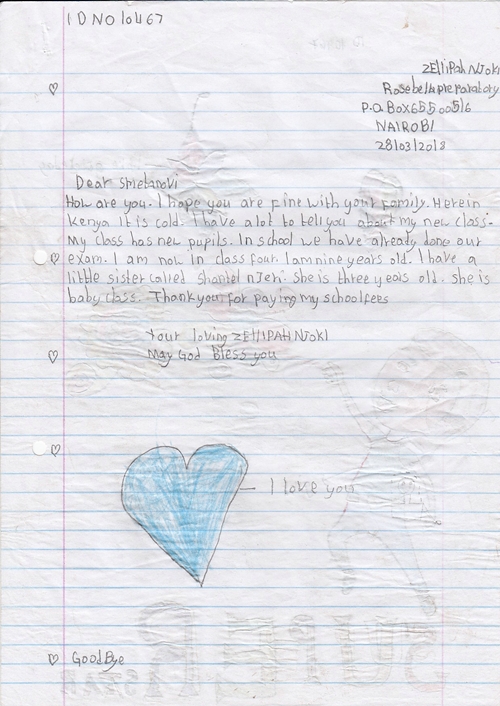 ID NO 10467
ZElliPah NJoki
Rosebella preparatory
P.O. Box
NAIROBI
28/03/2018
Dear
How are you. I hope you are fine with your Family. Here in
Kenya It is cold. I have a lot to tell you about my new class.
My class has new pupils. In school we have already done our
exam. I am now in class four. I am nine years old. I have a
little sister called Shantel nJeri. She is three years old. She is
baby class. Thank you for paying my school fees
Your loving ZEllIPAH NJOKI
May God Bless you
I love you
GoodBye